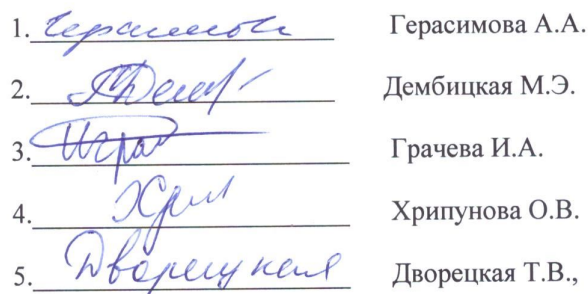 1. Герасимова Герасимова А.А.
2. Дембицкая М.Э.
3. Грачева И.А.
4. Хрип Хрипунова О.В.
5. Дворецкая Дворецкая Т.В.,